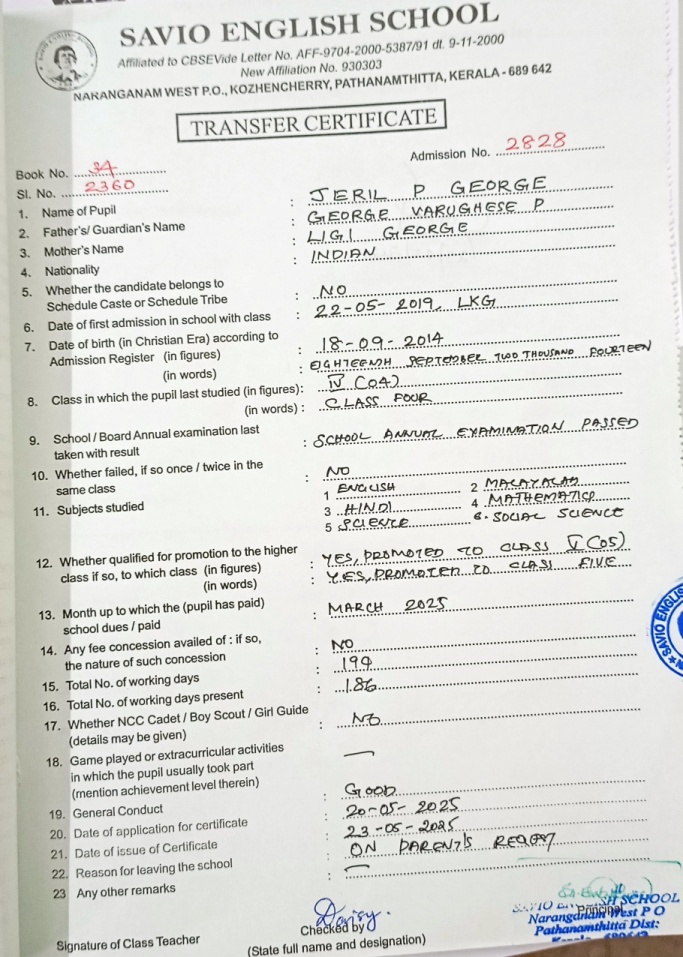 SAVIO ENGLISH SCHOOL
Affiliated to CBSEVide Letter No. AFF-9704-2000-5387/91 dt. 9-11-2000
New Affiliation No. 930303
NARANGANAM WEST P.O., KOZHENCHERRY, PATHANAMTHITTA, KERALA - 689 642
TRANSFER CERTIFICATE
Admission No. 2828
Book No. 34
Sl. No. 2360
1. Name of Pupil : JERIL P GEORGE
2. Father's/ Guardian's Name : GEORGE VARUGHESE P
3. Mother's Name : LIGI GEORGE
4. Nationality : INDIAN
5. Whether the candidate belongs to
Schedule Caste or Schedule Tribe : NO
6. Date of first admission in school with class : 22-05-2019, LKG
7. Date of birth (in Christian Era) according to
Admission Register (in figures) : 18-09-2014
(in words) : EIGHTEENH SEPTEMBER TWO THOUSAND FOURTEEN
8. Class in which the pupil last studied (in figures): IV (04)
(in words) : CLASS FOUR
9. School / Board Annual examination last
taken with result : SCHOOL ANNUAL EXAMINATION PASSED
10. Whether failed, if so once / twice in the
same class : NO
11. Subjects studied 1 ENGLISH 2 MALAYALAM
3 HINDI 4 MATHEMATICS
5 SCIENCE 6. SOCIAL SCIENCE
12. Whether qualified for promotion to the higher
class if so, to which class (in figures) : YES, PROMOTED TO CLASS V (05)
(in words) : YES, PROMOTED TO CLASS FIVE
13. Month up to which the (pupil has paid)
school dues / paid : MARCH 2025
14. Any fee concession availed of : if so,
the nature of such concession : NO
15. Total No. of working days : 194
16. Total No. of working days present : 186
17. Whether NCC Cadet / Boy Scout / Girl Guide
(details may be given) : NO
18. Game played or extracurricular activities
in which the pupil usually took part
(mention achievement level therein) —
19. General Conduct : GOOD
20. Date of application for certificate : 20-05-2025
21. Date of issue of Certificate : 23-05-2025
22. Reason for leaving the school : ON PARENT'S REQUEST
23 Any other remarks : —
Signature of Class Teacher
Checked by
(State full name and designation)
Principal
SAVIO ENGLISH SCHOOL
Naranganam West P O
Pathanamthitta Dist:
SAVIO ENGLIS